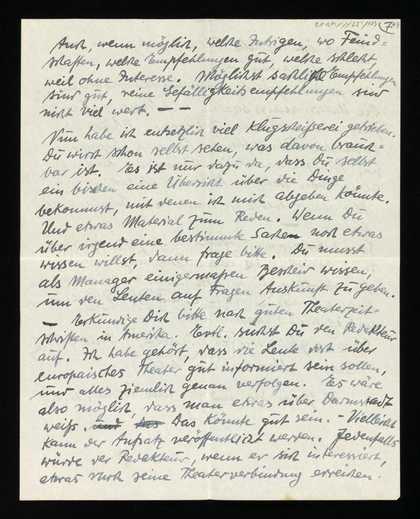 Auch, wenn möglich, welche Intrigen, wo Feind-
schaften, welche Empfehlungen gut, welche schlecht,
weil ohne Interesse. Möglichst sachliche Empfehlungen
sind gut, reine Gefälligkeitsempfehlungen sind
nicht viel wert. — —
Nun habe ich entsetzlich viel Klugscheißerei getrieben.
Du wirst schon selbst sehen, was davon brauch-
bar ist. Es ist nur dazu da, dass Du selbst
ein bisschen eine Übersicht über die Dinge
bekommst, mit denen ich mich abgeben könnte.
Und etwas Material zum Reden. Wenn Du
über irgend eine bestimmte Sachen noch etwas
wissen willst, dann frage bitte. Du musst
als Manager einigermaßen Bescheid wissen,
um den Leuten auf Fragen Auskunft zu geben.
— Erkundige Dich bitte nach guten Theaterzeit-
schriften in Amerika. Evtl. suchst Du den Redakteur
auf. Ich habe gehört, dass die Leute dort über
europäisches Theater gut informiert sein sollen,
und alles ziemlich genau verfolgen. Es wäre
also möglich, dass man etwas über Darmstadt
weiß. Das könnte gut sein. – Vielleicht
kann der Aufsatz veröffentlicht werden. Jedenfalls
würde der Redakteur, wenn er sich interessiert,
etwas durch seine Theaterverbindung erreichen.